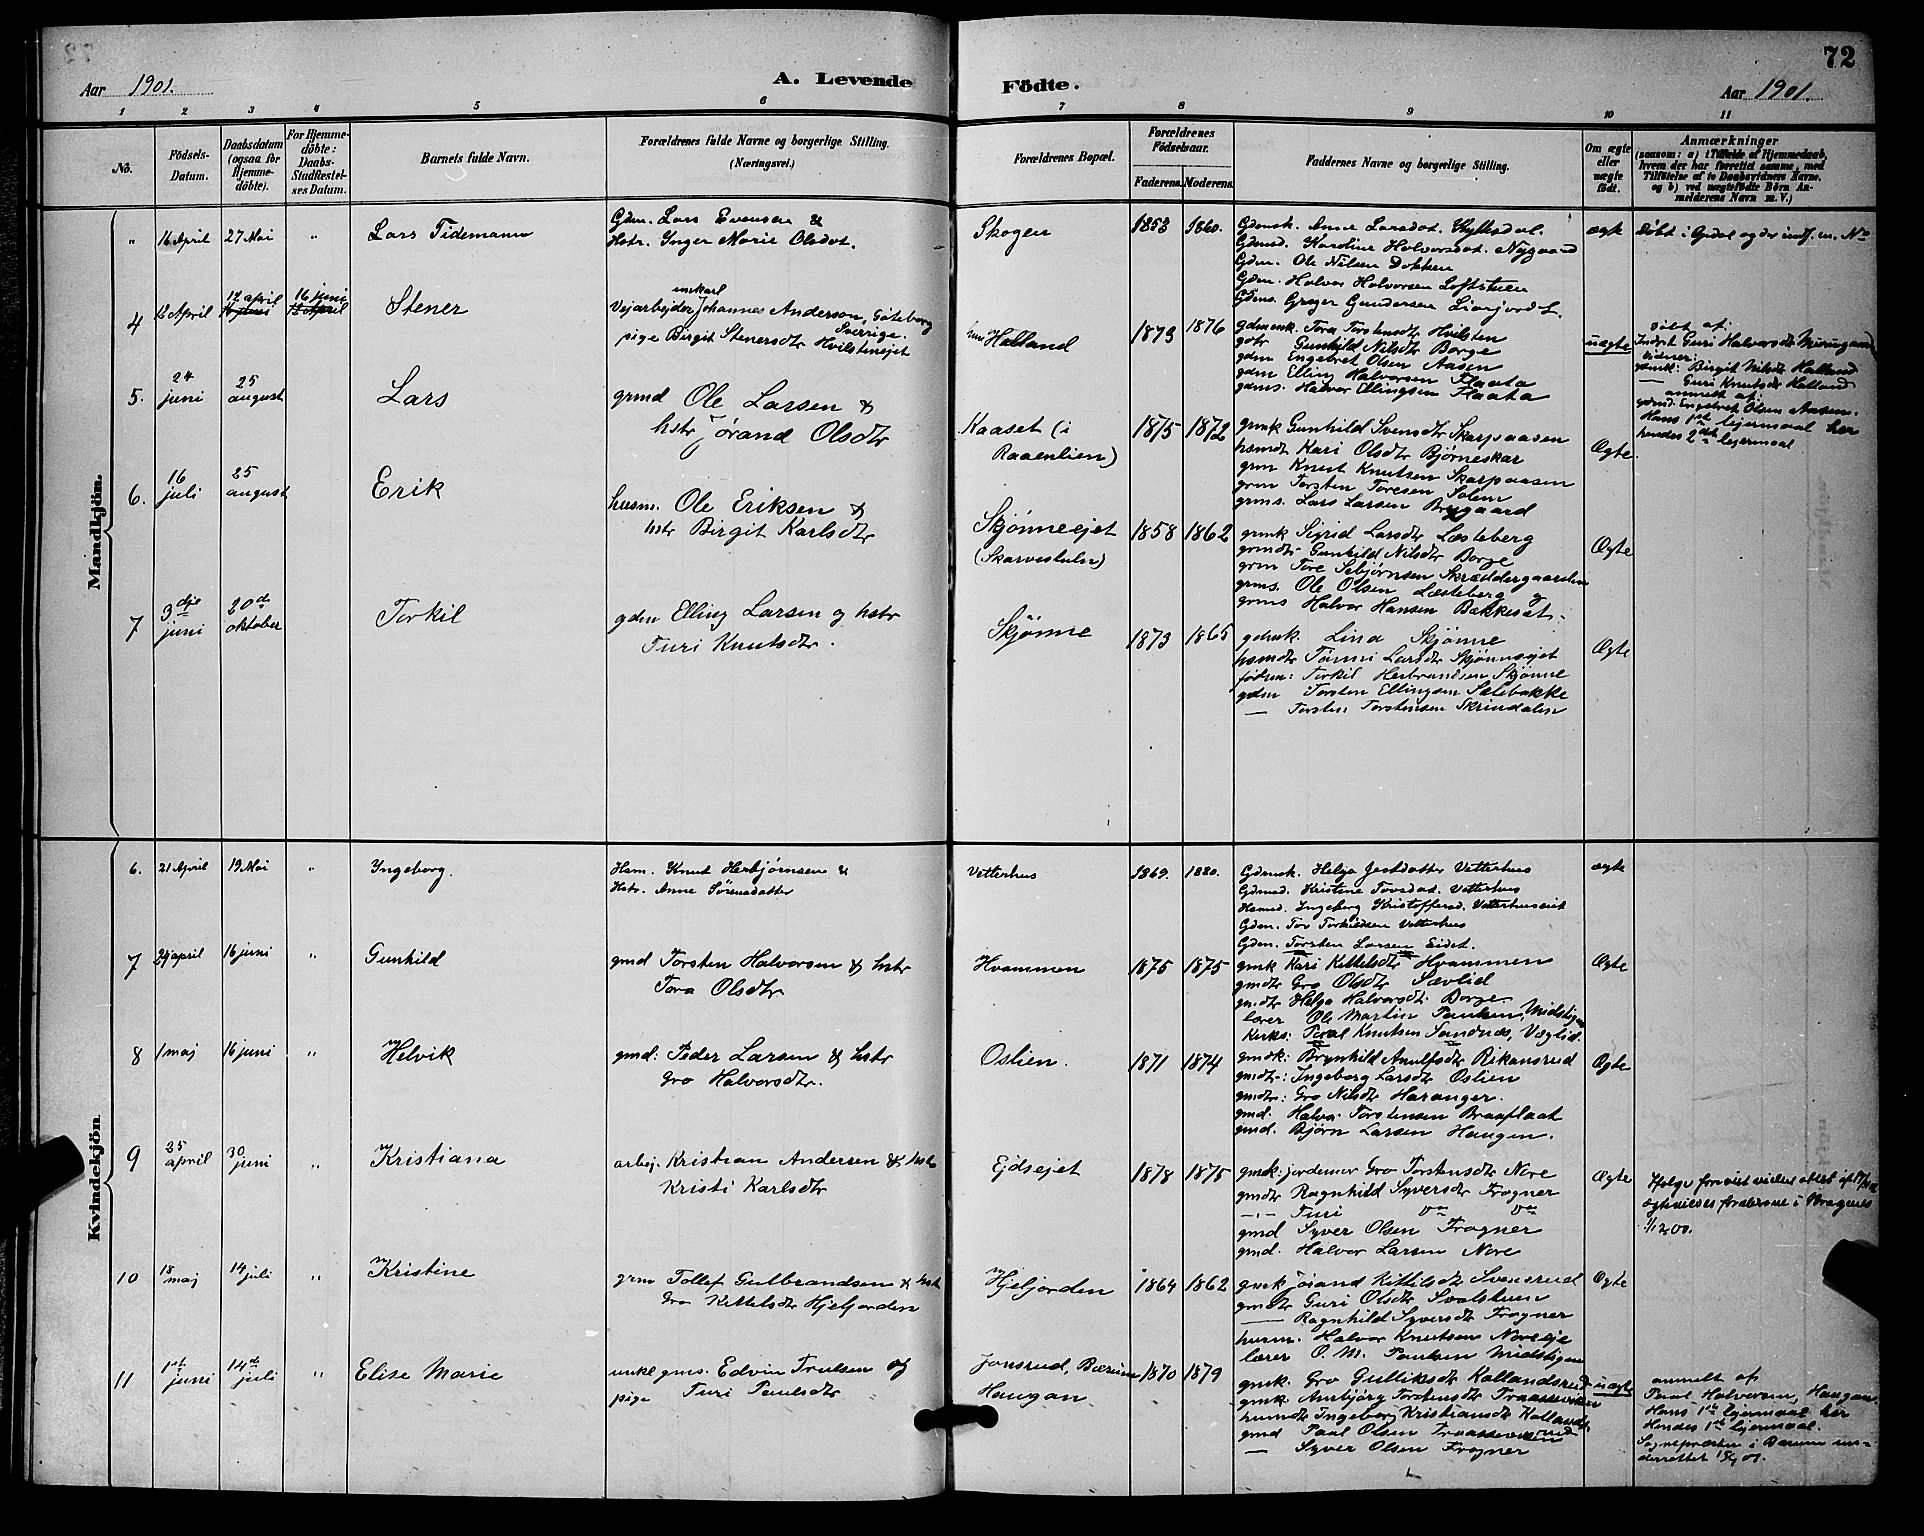 72
Aar 1901.
A. Levende Födte.
Aar 1901.
1 2 3 4 5 6 7 8 9 10 11
No.
Födsels-Datum.
Daabsdatum (ogsaa for Hjemme-döbte).
For Hjemme-döbte: Daabs-Stadfæstel-ses Datum.
Barnets fulde Navn.
Forældrenes fulde Navne og borgerlige Stilling. (Næringsvei.)
Forældrenes Bopæl.
Forældrenes Födselsaar.
Faderens. Moderens.
Faddernes Navne og borgerlige Stilling.
Om ægte eller uægte födt.
Anmærkninger
(saasom: a) i Tilfælde af Hjemmedaab, hvem der har forrettet samme, med Tilföielse af to Daabsvidners Navne. og b) ved uægtefödte Börn Anmelderens Navn m. V.)
Mandkjön.
" 16 April 27 Mai " Lars Tidemann
Gdm. Lars Evensen &
Hstr. Inger Marie Olsdat.
Skogen 1853 1860.
Gdmsk. Anne Larsdat.
Gdmd. Karoline Halvorsdat. Nygaard
Gdm. Ole Nilsen Dokken
Gdm. Halvor Halvorsen Loftstuen
Gdms. Greger Gundersen
ægte
Döbt i Opdal og der indf. m. No
4 12 April 12 april 16 juni Stener
ungkarl
Vejarbejder Johannes Anderson, Göteborg Sverrige.
pige Birgit Stenersdtr Hvilstenejet
Halland 1873 1876
gdmenk. Tora Torstensdtr Hvilsten
gdtr Gunhild Nilsdtr Borge
gdm Engebret Olsen Aasen
gdm Elling Halvorsen Flaata
gdms. Halvor Ellingsen Flaata
uægte
döbt af:
Indrst Guri Halvorsdtr
vidner:
gdmk: Birgit Nilsdtr Halland
— Guri Knutsdtr Halland
anmelt af:
gdmd. Engebret Olsen Aasen.
Hans 1ste lejermaal her
hendes 2det lejermaal
5. 24 juni 25 august Lars
grmd Ole Larsen &
hstr Jørand Olsdtr
Kaaset (i Raaenlien) 1875 1872
gmk Gunhild Svensdtr Skarpaasen
hsmdt Kari Olsdtr Bjørneskar
grm Knut Knutsen Skarpaasen
grm Torsten Toresen Solem
grms. Lars Larsen Brygaard
Ægte.
6. 16 juli 25 august Erik
husm. Ole Eriksen &
hstr Birgit Karlsdtr
Skjønneejet (Skarvestuln) 1858 1862
gmk Sigrid Larsdtr Læsteberg
grmdtr Gunhild Nilsdtr Borge
grm Tore Sebjørnsen Skræddergaarden
grms. Ole Olsen Læsteberg og
grms Halvor Hansen Bakkeset.
Ægte
7 3dje juni 20de oktober Torkil
gdm Elling Larsen og hstr
Turi Knutsdtr.
Skjønne 1873 1865
gdmk. Lina Skjønne
hsmdtr Tämi Larsdtr Skjønneejet
födm: Torkil Herbrandsen Skjønne
gdm Torsten Ellingsen Sætebakke
— Torsten Torstensen Skrindalen
Ægte
Kvindekjön
6. 21 April 19 Mai " Ingeborg.
Hsm. Knut Herbjørnsen &
Hstr. Anne Sörensdatter
Vetterhus 1869. 1880.
Gdmsk. Helga Gestdatter Vetterhus
Gdmsd. Kristine Torsdat. Vetterhus
Hsmsd. Ingeborg Kristoffersd. Vetterhuseiet
Gdm. Tor Torkildsen Vetterhus
Gdm. Torsten Larsen Eidet.
ægte
7 29 april 16 juni " Gunhild
gmd Torsten Halvorsen & hstr
Tora Olsdtr.
Hvammen 1875 1875
gmk Kari Kittelsdtr Hvammen
gmdtr Gro Olsdtr Sævlid
gmdtr Helga Halvorsdtr. Borge.
lærer Ole Martin Paulsen, Midstigen
Kirks: Paal Knutsen Sandnes, Væglid.
Ægte
8 1 maj 16 juni " Helvik
gmd: Peder Larsen & hstr
Gro Halvorsdtr.
Oslien. 1871 1874
gmdk: Brynhild Arnulfsdtr Rikansrud
gmdtr: Ingeborg Larsdtr Oslien
gmdtr: Gro Nilsdtr Haranger.
gmd. Halvor Torstensen Braaflaat
gmd. Bjørn Larsen Haugen.
Ægte
9 25 april 30 juni " Kristiana
arbej. Kristian Andersen & hstr
Kristi Karlsdtr
Ejdsejet 1878 1875
gmk: jordemor Gro Torstensdtr Nore
gmdtr Ragnhild Syversdtr Frogner
-"- Turi do do
gmd Syver Olsen Frogner
gmd. Halvor Larsen Nore
Ægte
Ifølge forevist vielses attest
ægteviedes forældrene i Bragnes
1/12 00.
10 18 maj 14 juli " Kristine
grm Tollef Gulbrandsen & hstr
Gro Kittelsdtr Hjeljorden
Hjeljorden 1864 1862
gmk Jørand Kittilsdtr Svensrud
gmdtr Guri Olsdtr Svalstuen
— Ragnhild Syversdtr Frogner
husm. Halvor Knutsen Noreeje
lærer O. M. Paulsen Midstigen
Ægte
11 1ste juni 14de juli " Elise Marie
unkl gms. Edvin Trulsen og
pige Turi Paulsdtr
Jonsrud, Bærum
Haugan. 1870 1879
gmk. Gro Gulliksdtr Kallandsrud
gmk. Ambjörg Torstensdtr Traasseviken
husmdtr Ingeborg Kristiansdtr Kallands-rud
gmd Paal Olsen
— Syver Olsen Frogner
uægte
anmelt af
Paal Halvorsen, Haugan.
Hans 1ste lejermaal her
Hendes 1ste lejermaal.
Sognepræsten i Bærum un-
derrettet